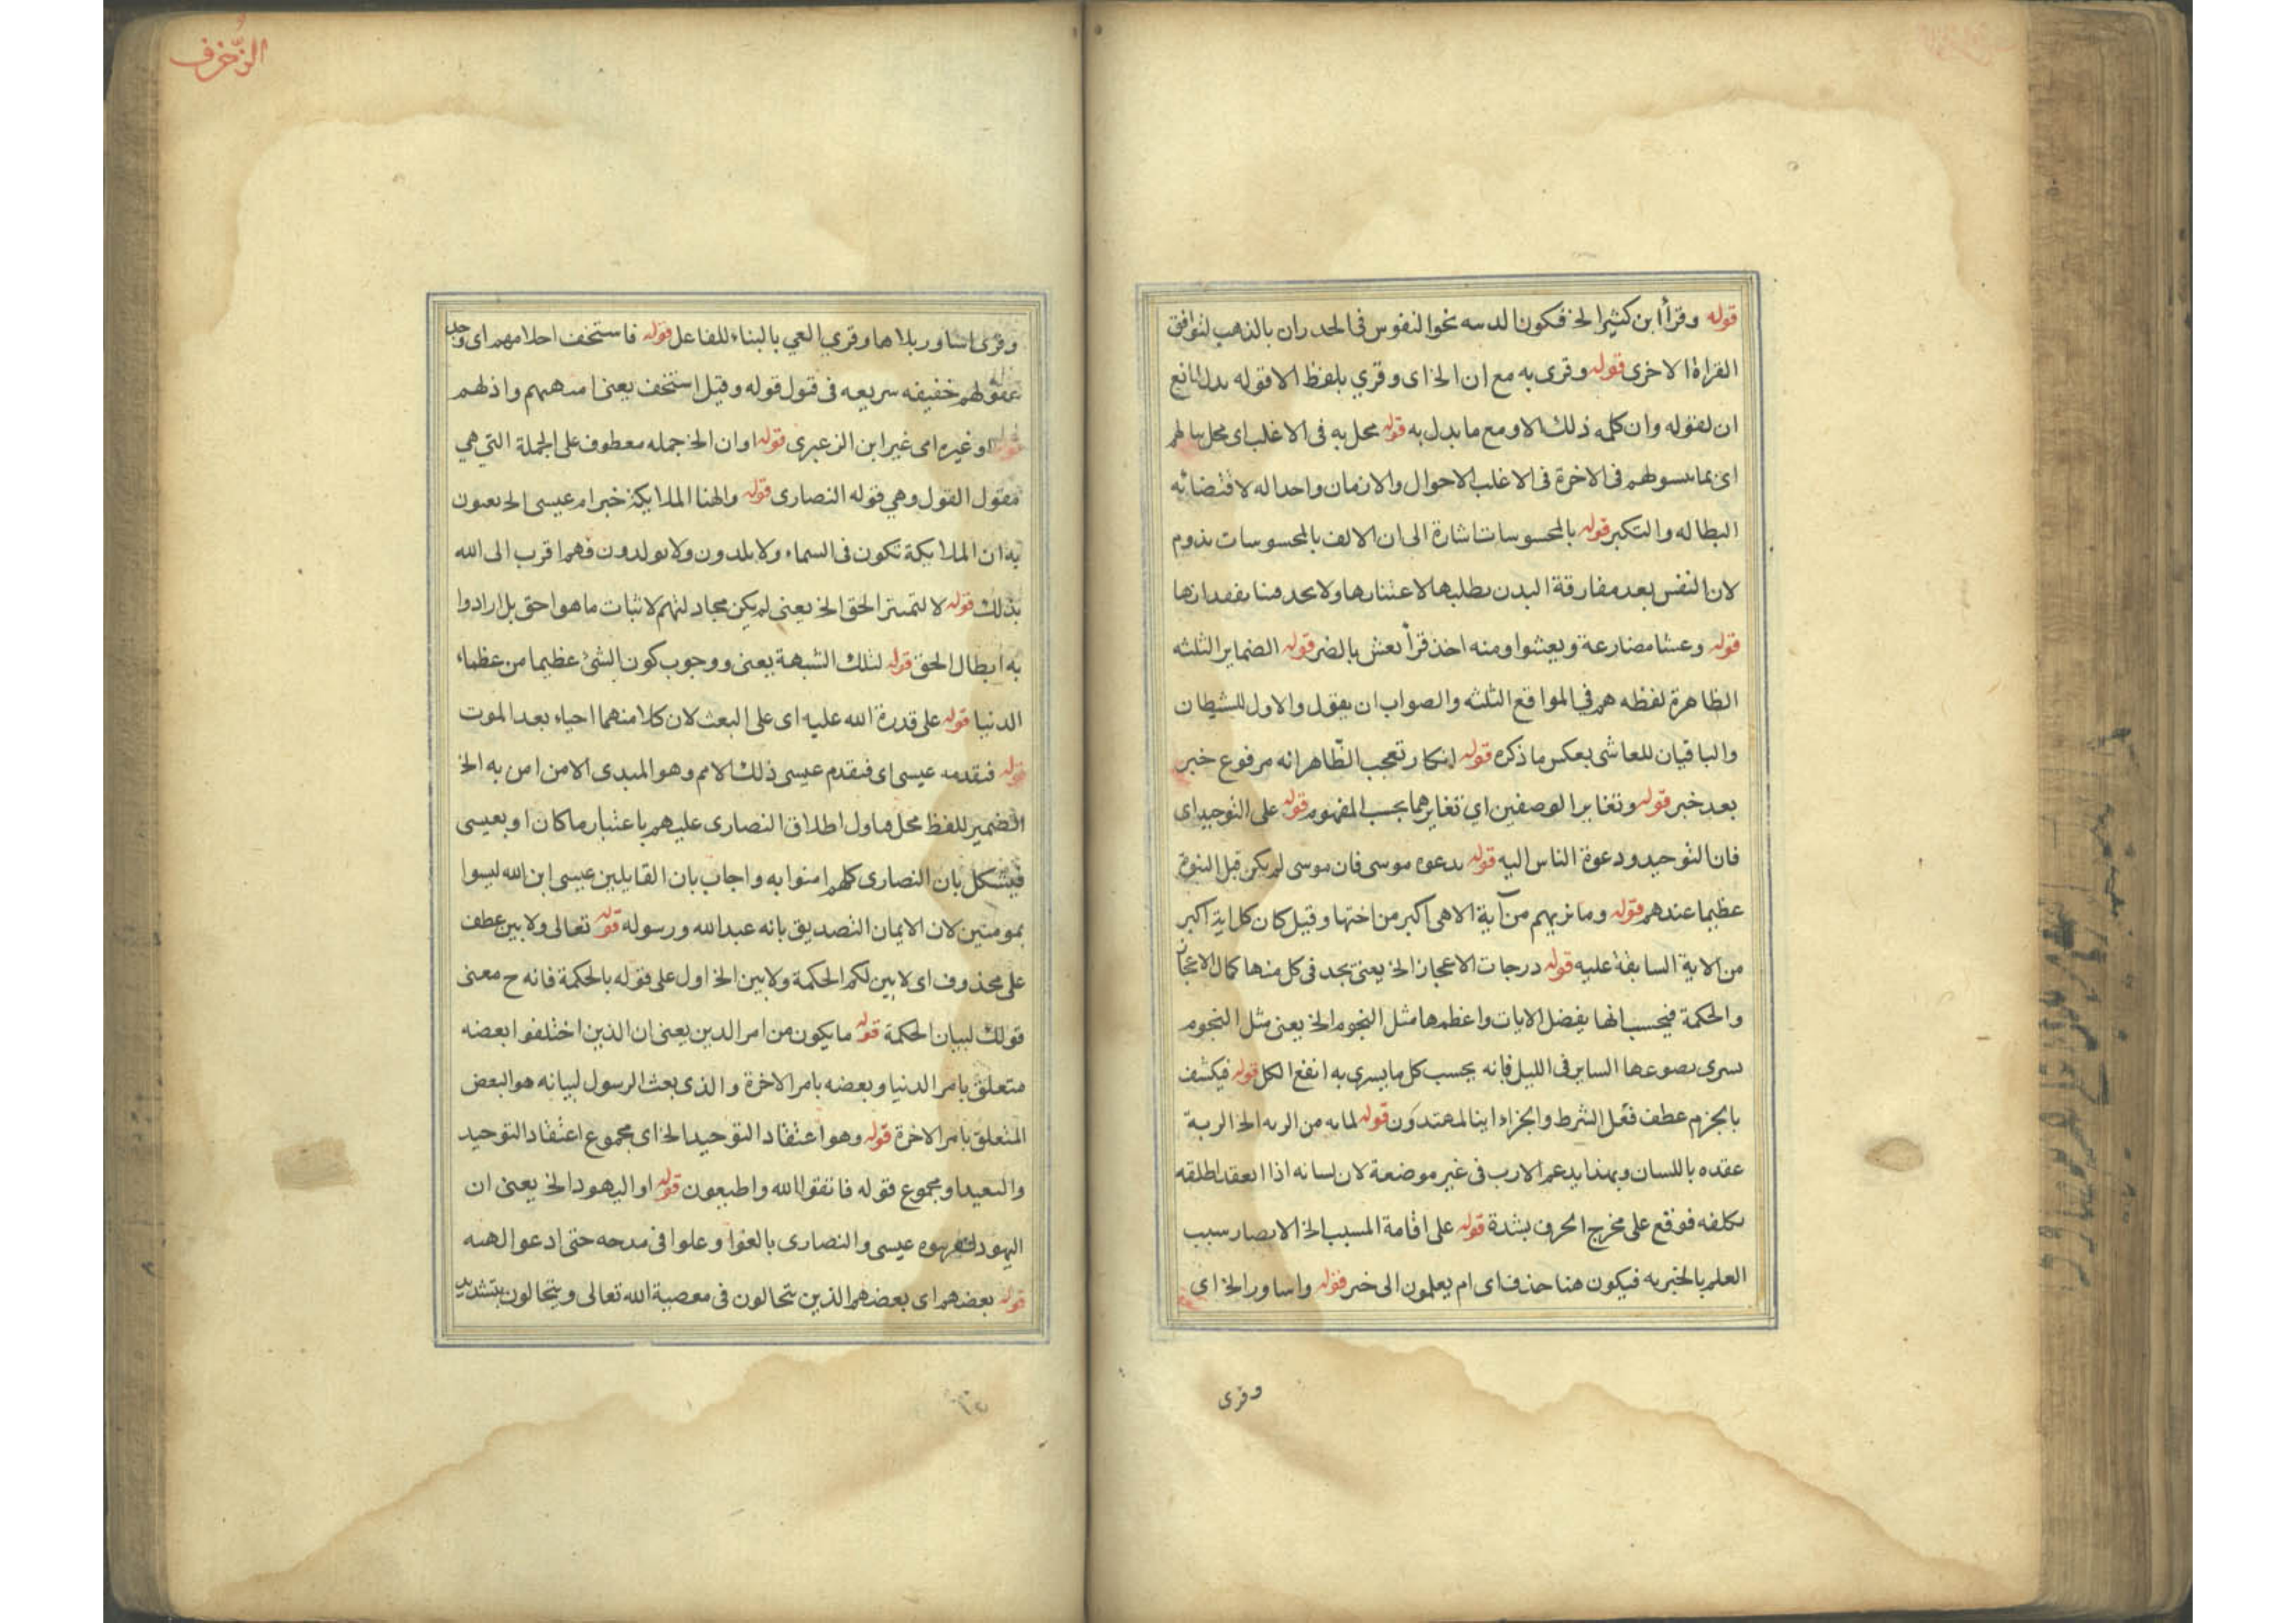 قوله وقرأ ابن كثير الخ فكون الدسه نحوا لنفوس فى الجدران بالذهب لتوافق
القراة الاخرى قوله وقرى به مع ان الخ اى وقري بلفظ الا قوله بدل لمانع
ان لقوله وان كله ذلك الا ومع ما بدل به قوله محل به فى الاغلب اى محل بها لهم
اى بما فى الاخرة فى الاغلب الاحوال والازمان واحد اله لاقتضائه
البطاله والتكبر قوله بالمحسوسات اشارة الى ان الالف بالمحسوسات بدوم
لان النفس بعد مفارقة البدن بطلبها لاعتبارها ولا يجد فتا بفقدانها
قوله وعشا مضارعة ويعشوا ومنه اخذ قرأ يعش بالضم قوله الضماير الثلثه
الظاهرة لفظه هم فى المواقع الثلثه والصواب ان يقول والاول للشيطان
والباقيان للعاشى بعكس ما ذكره قوله انكار تعجب الظاهر انه مرفوع خبر
بعد خبر قوله وتغاير الوصفين اي تغايرهما بحسب المفهوم قوله على التوحيد اى
فان التوحيد ودعوة الناس اليه قوله بدعوه موسى فان موسى لم يكن قبل النبوة
عظيما عندهم قوله وما نريهم من آية الا هى اكبر من اختها وقيل كان كل اية اكبر
من الاية السابقة عليه قوله درجات الاعجاز الخ يعنى يجد فى كل منها كمال الاعجاز
والحكمة فيحسب انها يفضل الايات واعظمها مثل النجوم الخ يعنى مثل النجوم
سرى بضوءها الساير فى الليل فانه يحسب كل ما يسرى به انفع الكل قوله فيكشف
بالجزم عطف فعل الشرط والجزاء اننا لمهتدون قوله لمابه من الربه الخ الربة
عقده باللسان وبهذا يدعم الارب فى غير موضعة لان لسانه اذا انعقد اطلقه
بكلفه فوقع على مخرج الحرف بشدة قوله على اقامة المسبب الخ الابصار سبب
العلم بالخبر به فيكون هنا حذف اى ام يعلمون الى خبر قوله واساور الخ اى
وقرى
الزخرف
وقرى اساور بلاها وقري القي بالبناء للفاعل قوله فاستخف احلامهم اى وجد
عقولهم خفيفه سريعه فى قبول قوله وقيل استخف يعنى امتهنهم واذلهم
قوله او غيره اى غير ابن الزعبرى قوله اوان الخ جمله معطوف على الجملة التى هي
مقول القول وهي قوله النصارى قوله والهنا الملايكة خبر ام عيسى الخ يعنون
به ان الملايكة تكون فى السماء ولا يلدون ولا يولدون فهم اقرب الى الله
بذلك قوله لا لتميز الحق الخ يعنى لم يكن مجادلتهم لاثبات ما هو احق بل ارادوا
به ابطال الحق قوله لتلك الشبهة يعنى ووجوب كون الشئ عظيما من عظماء
الدنيا قوله على قدرة الله عليه اى على البعث لان كلا منهما احياء بعد الموت
قوله فتقدمه عيسى اى فتقدم عيسى ذلك الامم وهو المبدى الامن امن به الخ
الضمير للفظ محلها ول اطلاق النصارى عليهم باعتبار ما كان او بعيسى
فيشكل بان النصارى كلهم امنوا به واجاب بان القايلين عيسى ابن الله ليسوا
بمومنين لان الايمان التصديق بانه عبد الله ورسوله قوله تعالى ولابين عطف
على محذوف اى لابين لكم الحكمة ولابين الخ اول على قوله بالحكمة فانه ح معنى
قولك لبيان الحكمة قوله ما يكون من امر الدين يعنى ان الذين اختلفوا بعضه
متعلق بامر الدنيا وبعضه بامر الاخرة والذى بعث الرسول لبيانه هو البعض
المتعلق بامر الاخرة قوله وهو اعتقاد التوحيد الخ اى مجموع اعتقاد التوحيد
والتعيد او مجموع قوله فاتقوا الله واطيعون قوله او اليهود الخ يعنى ان
اليهود عيسى والنصارى بالغوا وعلوا فى مدحه حتى ادعوا الهته
قوله بعضهم اى بعضهم الذين يتحالون فى معصية الله تعالى ويتحالون بتشديد